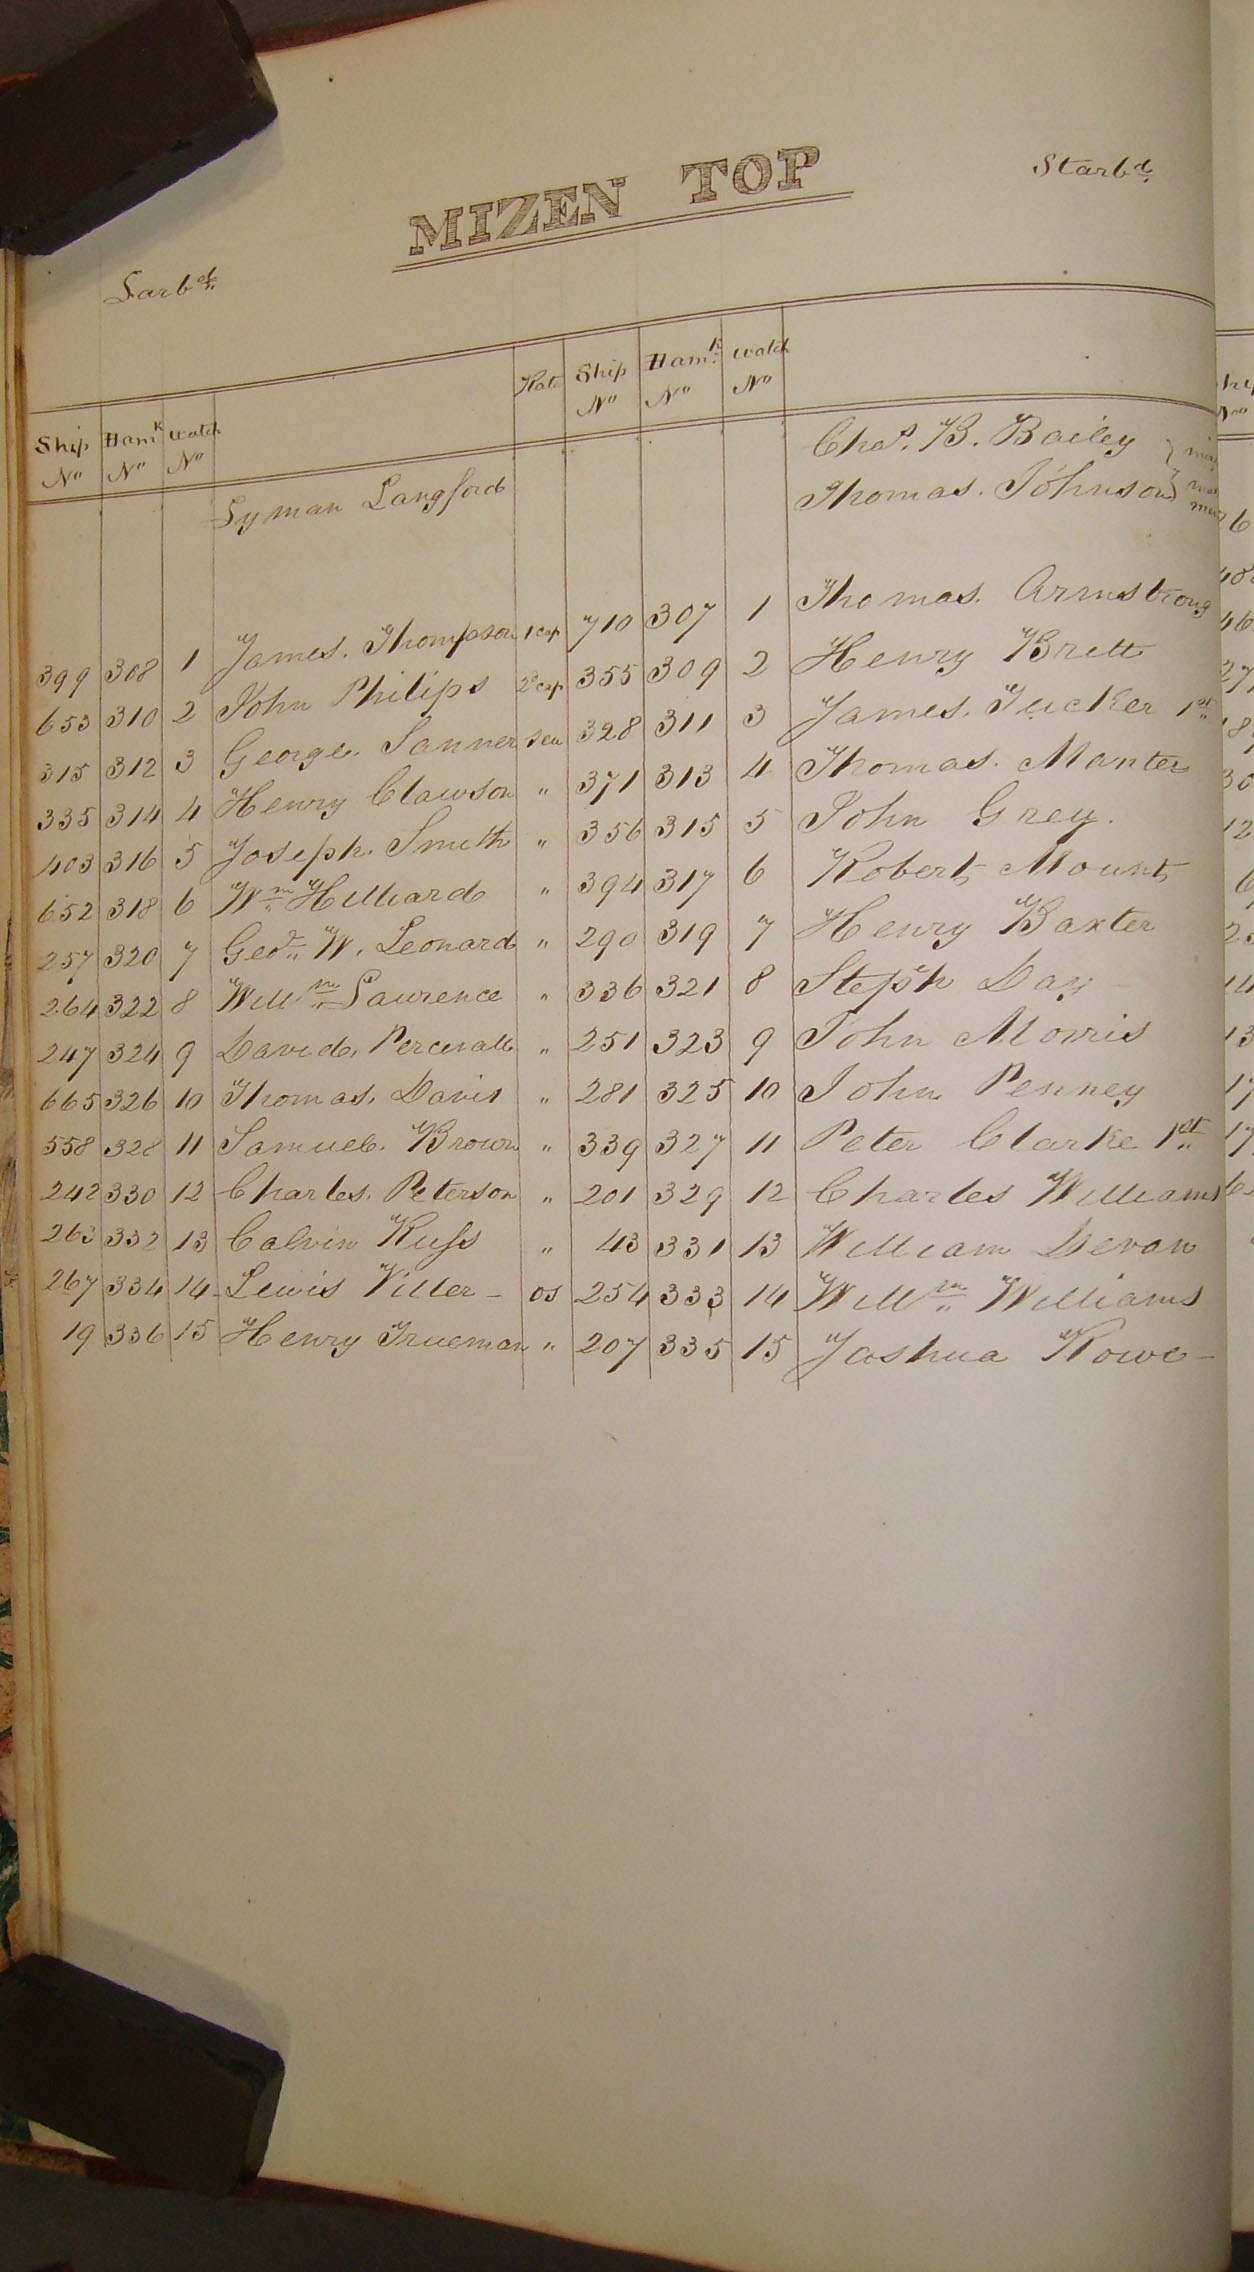 MIZEN TOP
Larbd. Starbd.
Ship No Hamk No Watch No Rate Ship No Hamk No Watch No
Lyman Langford Chas. B. Bailey
Thomas. Johnson
399 308 1 James. Thompson 1 cap 710 307 1 Thomas. Armstrong
653 310 2 John Philips 2d cap 355 309 2 Henry Brett
315 312 3 George. Sanner sea 328 311 3 James. Tucker 1st
335 314 4 Henry Clawson " 371 313 4 Thomas. Manter
403 316 5 Joseph. Smith " 356 315 5 John Grey.
652 318 6 Wm Hilliard " 394 317 6 Robert Mount
257 320 7 Geo. W. Leonard " 290 319 7 Henry Baxter
264 322 8 Willm Lawrence " 336 321 8 Steph Day
247 324 9 David. Percivall " 251 323 9 John Morris
665 326 10 Thomas. Davis " 281 325 10 John Penney
558 328 11 Samuel. Brown " 339 327 11 Peter Clarke 1st
242 330 12 Charles. Peterson " 201 329 12 Charles Williams
263 332 13 Calvin Russ " 43 331 13 William Devan
267 334 14 Lewis Viller - os 254 333 14 Willm Williams
19 336 15 Henry Trueman " 207 335 15 Joshua Rowe -